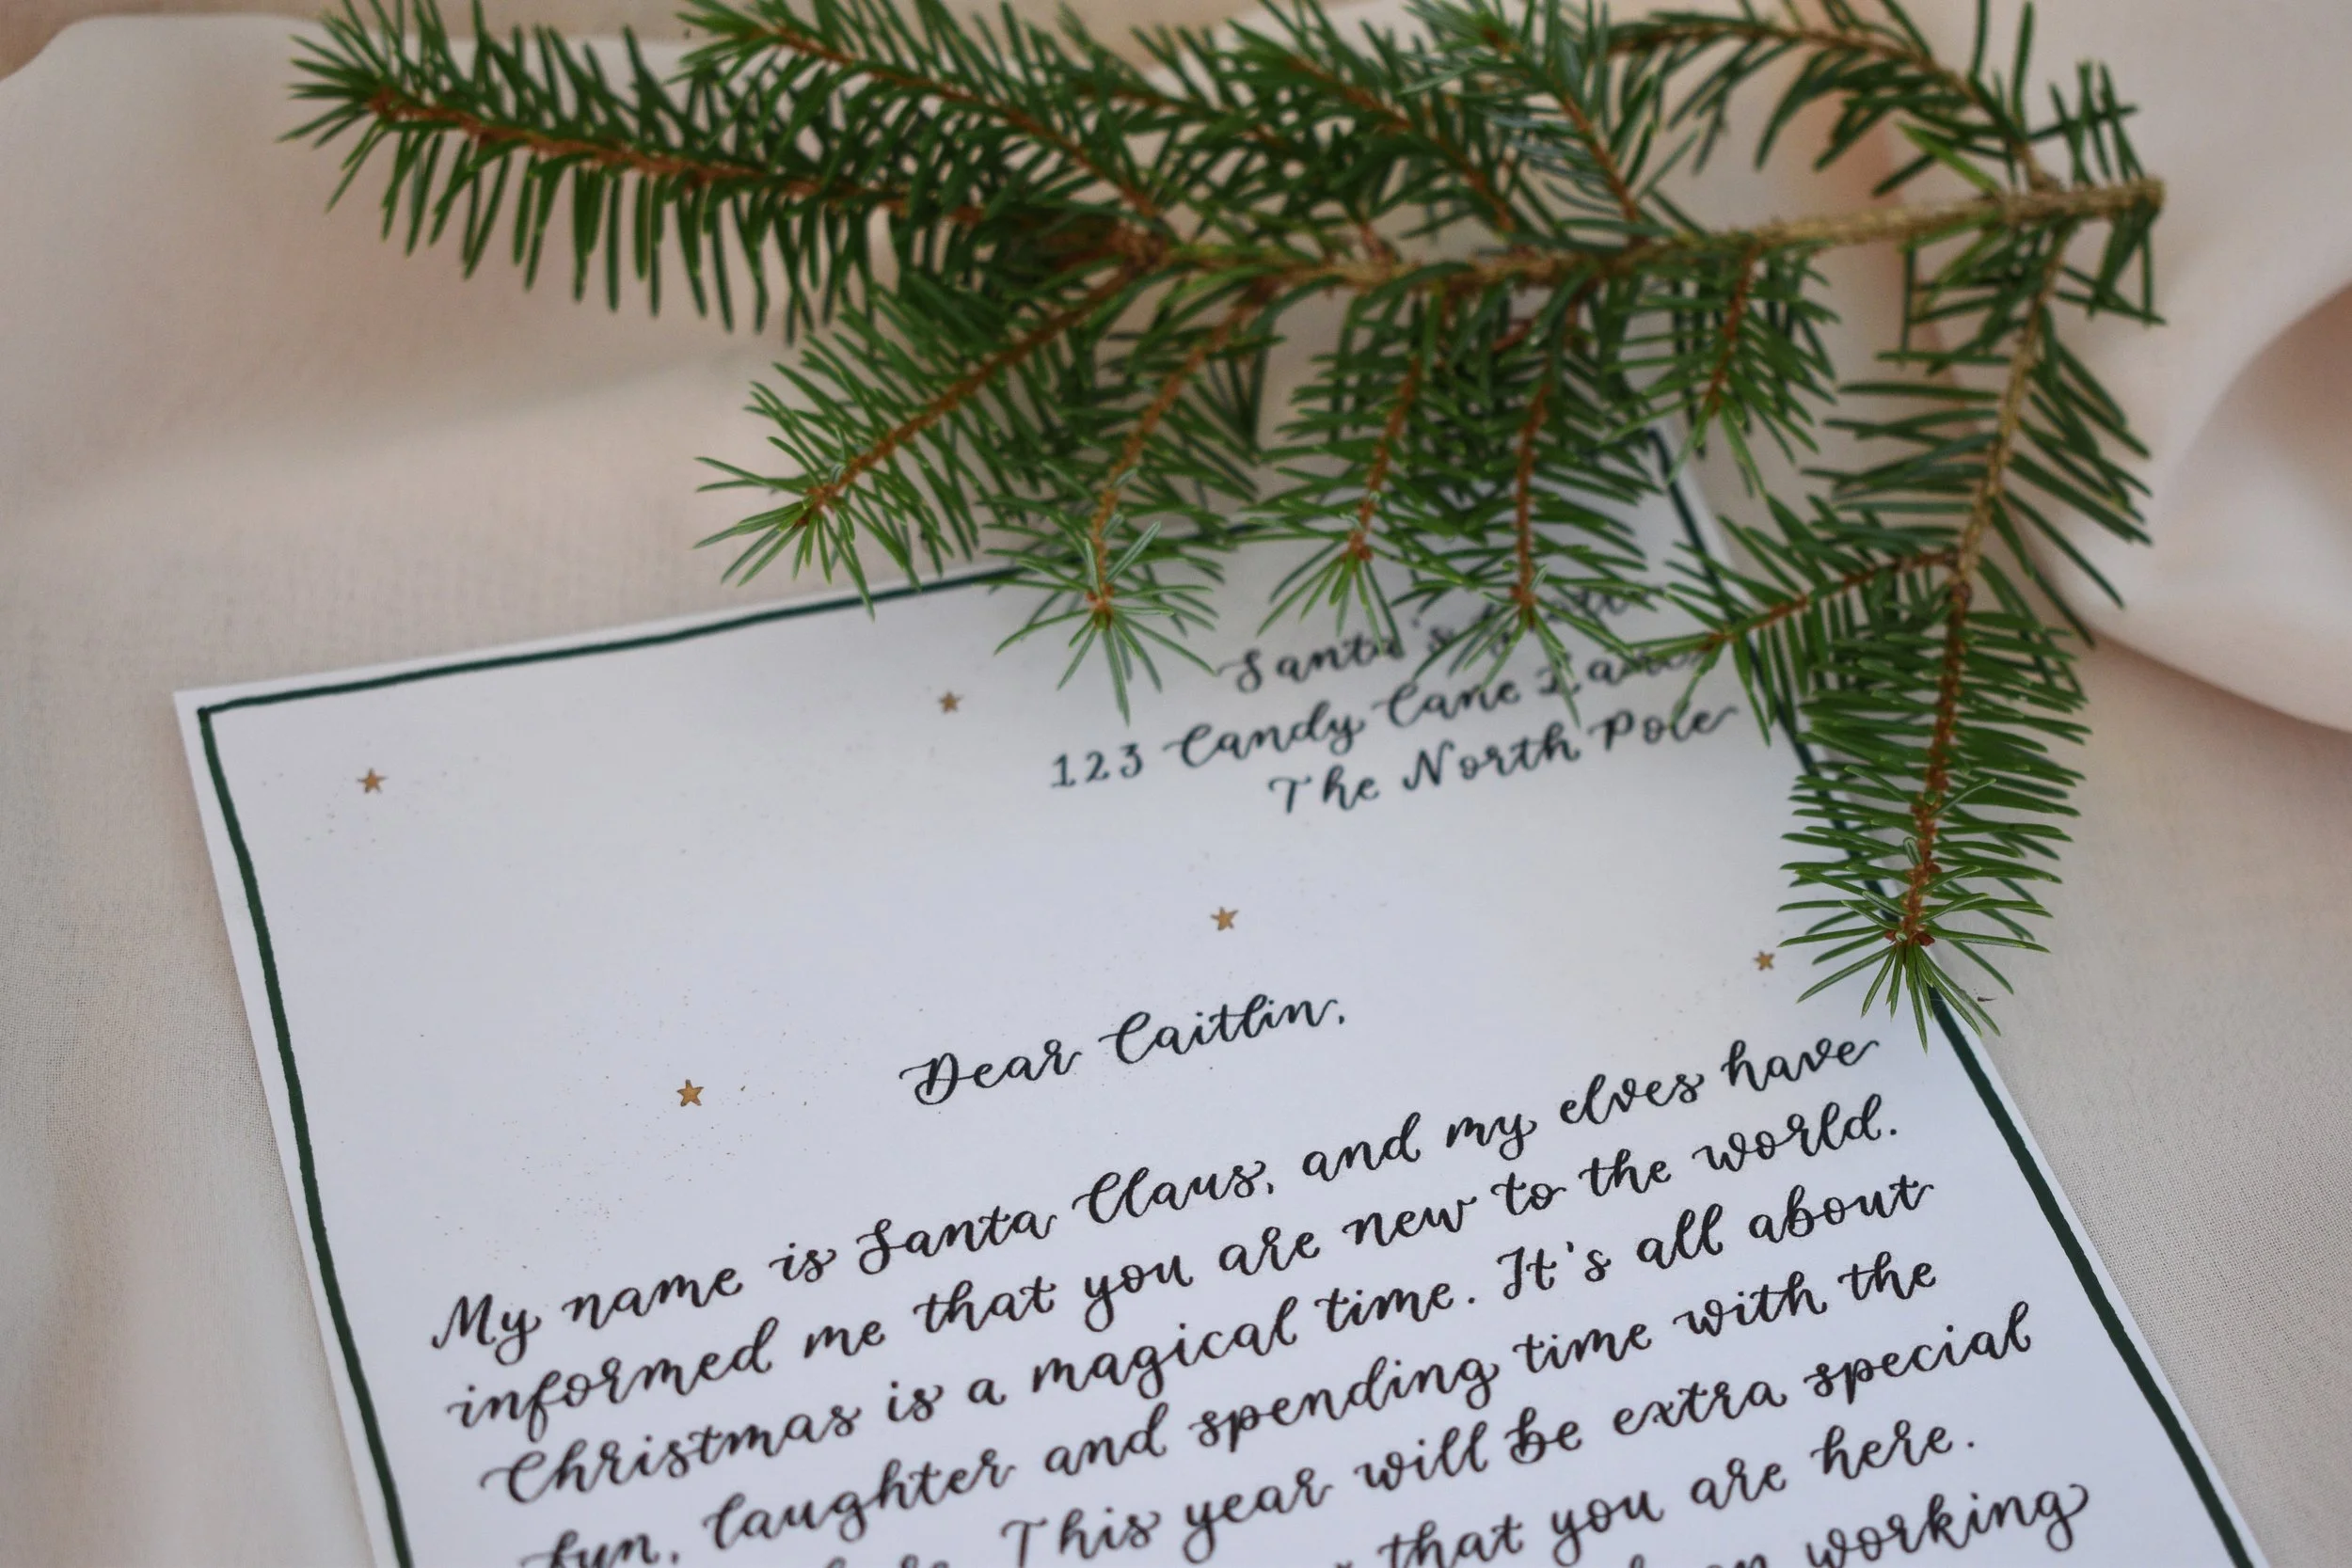 Santa's
123 Candy Cane Lane
The North Pole
Dear Caitlin,
My name is Santa Claus, and my elves have
informed me that you are new to the world.
Christmas is a magical time. It's all about
fun, laughter and spending time with the
This year will be extra special
that you are here.
working